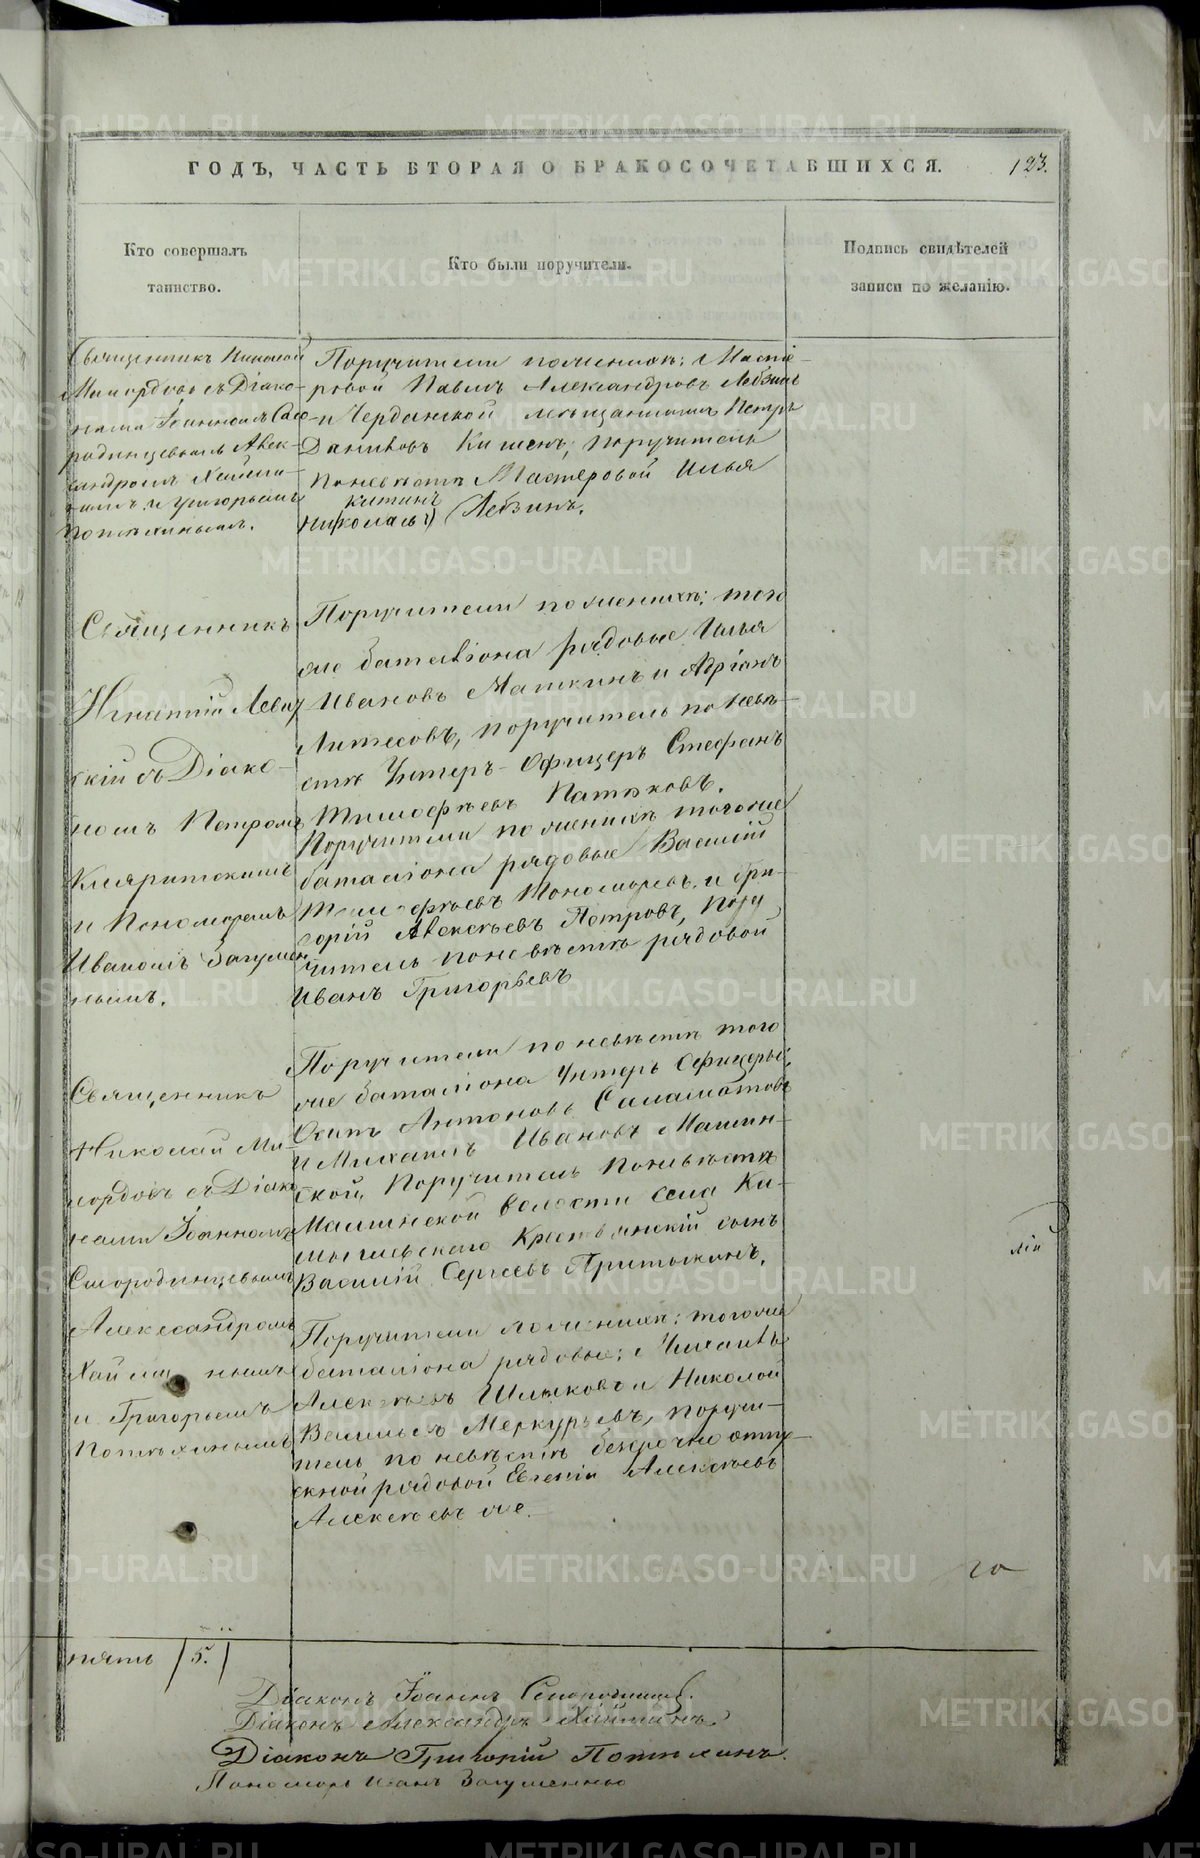 ГОДЪ, ЧАСТЬ ВТОРАЯ О БРАКОСОЧЕТАВШИХСЯ.
123.
Кто совершалъ
таинство.
Кто были поручители.
Подпись свидѣтелей
записи по желанію.
Священникъ Николай
Милордовъ съ Діако-
нами Іоанномъ Смо-
родинцевымъ Алек-
сандромъ
и Григорьемъ
Потѣхинымъ.
Поручители по женихѣ: Масте-
ровой Павелъ Александровъ Лебзинъ
и Чердынской мещанинъ Петръ
Даниловъ поручитель
по невѣстѣ Мастеровой Илья
Никитинъ
Лебзинъ.
Священникъ
Игнатій Левиц
кій съ Діако-
номъ Петромъ
и Пономаремъ
Иваномъ Загумен
нымъ.
Поручители по женихѣ: того
же баталіона рядовые Илья
Ивановъ Маткинъ и Адріанъ
поручитель по невѣ-
стѣ Унтеръ-Офицеръ Стефанъ
Тимофѣевъ Патяковъ.
Поручители по женихѣ тогоже
баталіона рядовые Василій
Тимофѣевъ Пономаревъ и Гри-
горій Алексѣевъ Петровъ, пору
читель по невѣстѣ рядовой
Иванъ Григорьевъ
Священникъ
Николай Ми-
лордовъ съ Діако
нами Іоанномъ
Смородинцевымъ
Александромъ
и Григорьемъ
Потѣхинымъ
Поручители по невѣстѣ того
же баталіона Унтеръ Офицеры:
Осипъ Антоновъ Саламатовъ
и Михаилъ Ивановъ Машин-
ской, Поручитель по невѣстѣ
волости села Ки-
Крестьянскій сынъ
Василій Сергеевъ Притыкинъ.
Поручители по женихѣ: тогоже
баталіона рядовые: Михаилъ
Алексѣевъ Шляковъ и Николай
Васильевъ Меркурьевъ, поручи-
тель по невѣстѣ безсрочно отпу-
скной рядовой Евгеній Алексѣевъ
Алексѣевъ же.
пять / 5. /
Діаконъ Іоаннъ Смородинцевъ.
Діаконъ Александръ
Діаконъ Григорій Потѣхинъ.
Пономарь Иванъ Загуменныхъ